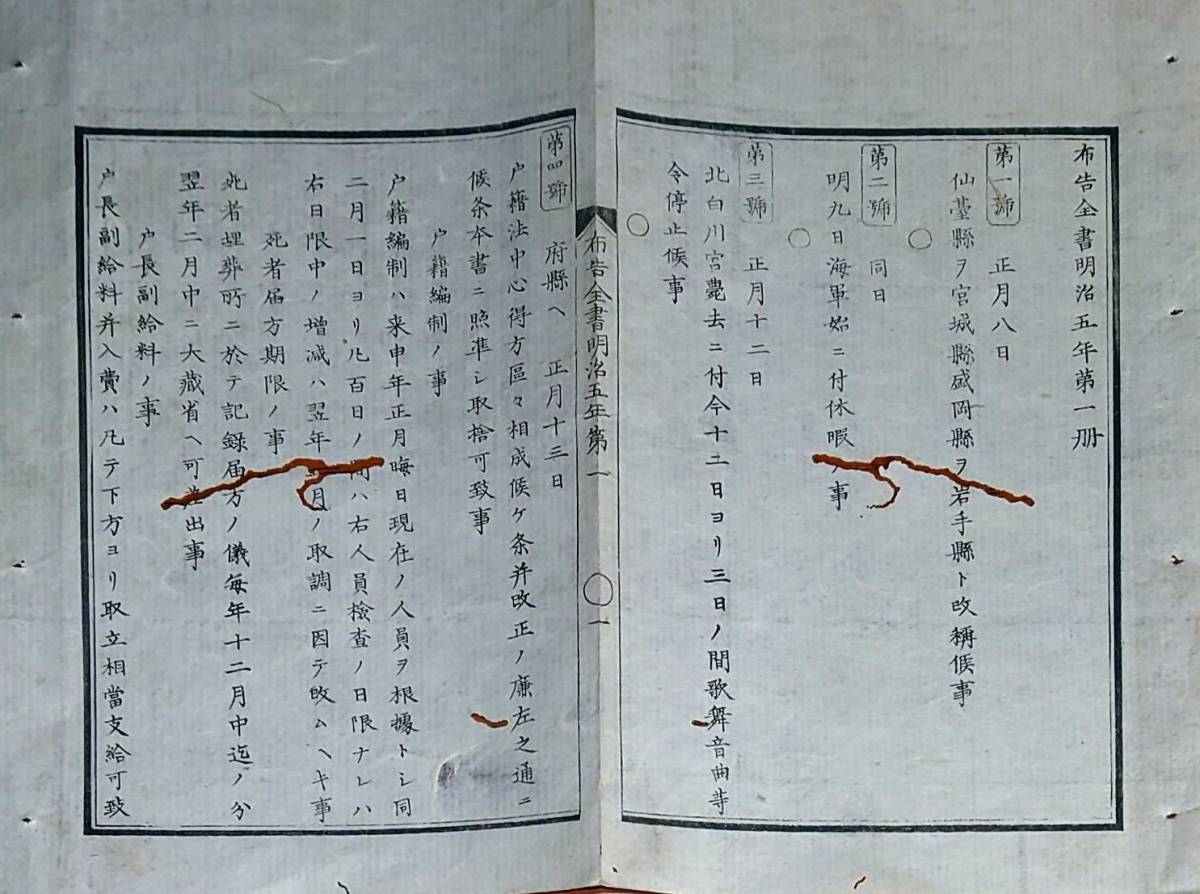 布告全書明治五年第一册
第一號 正月八日
仙臺縣ヲ宮城縣盛岡縣ヲ岩手縣ト改稱候事
○
第二號 同日
明九日海軍始ニ付休暇ノ事
○
第三號 正月十二日
北白川宮薨去ニ付今十二日ヨリ三日ノ間歌舞音曲等
令停止候事
○
布告全書明治五年第一 ○一
第四號 府縣ヘ 正月十三日
戸籍法中心得方區々相成候ケ条并改正ノ廉左之通ニ
候条本書ニ照準シ取捨可致事
戸籍編制ノ事
戸籍編制ハ来申年正月晦日現在ノ人員ヲ根據トシ同
二月一日ヨリ凡百日ノ間ハ右人員檢査ノ日限ナレハ
右日限中ノ增減ハ翌年 月ノ取調ニ因テ改ムヘキ事
死者届方期限ノ事
死者埋葬所ニ於テ記録届方ノ儀每年十二月中迄ノ分
翌年二月中ニ大藏省ヘ可差出事
戸長副給料ノ事
戸長副給料并入費ハ凡テ下方ヨリ取立相當支給可致